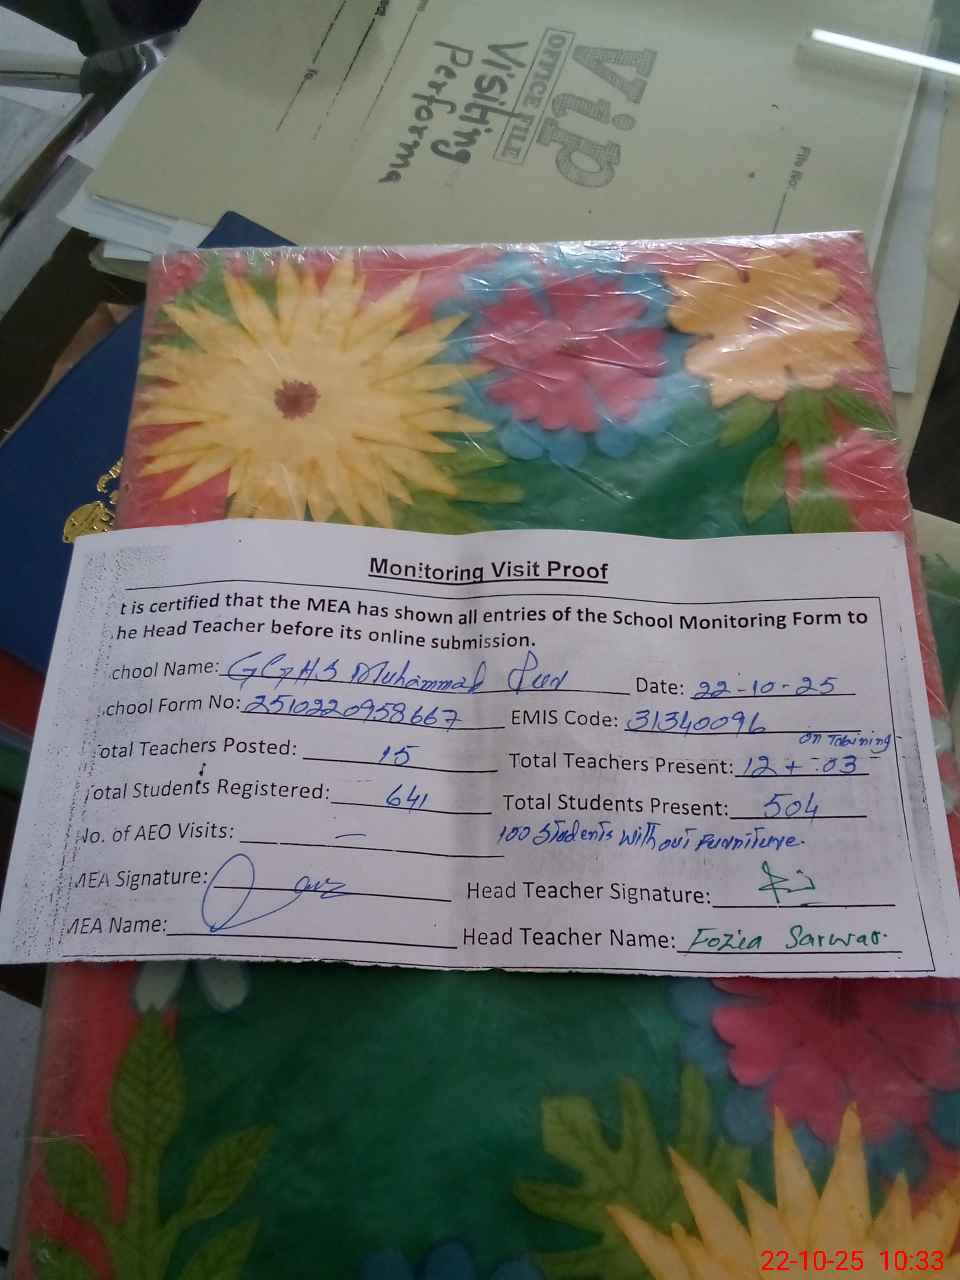 To:
File No:
vip
OFFICE FILE
Visiting
Performa
Monitoring Visit Proof
t is certified that the MEA has shown all entries of the School Monitoring Form to
he Head Teacher before its online submission.
chool Name: GGHS Muhammad Date: 22-10-25
chool Form No: 2510220958667 EMIS Code: 31340096
on Training
otal Teachers Posted: 15 Total Teachers Present: 12 + 03
otal Students Registered: 641 Total Students Present: 504
No. of AEO Visits: — 100 Students without Furniture.
MEA Signature: Head Teacher Signature:
MEA Name: Head Teacher Name: Fozia Sarwar.
22-10-25 10:33